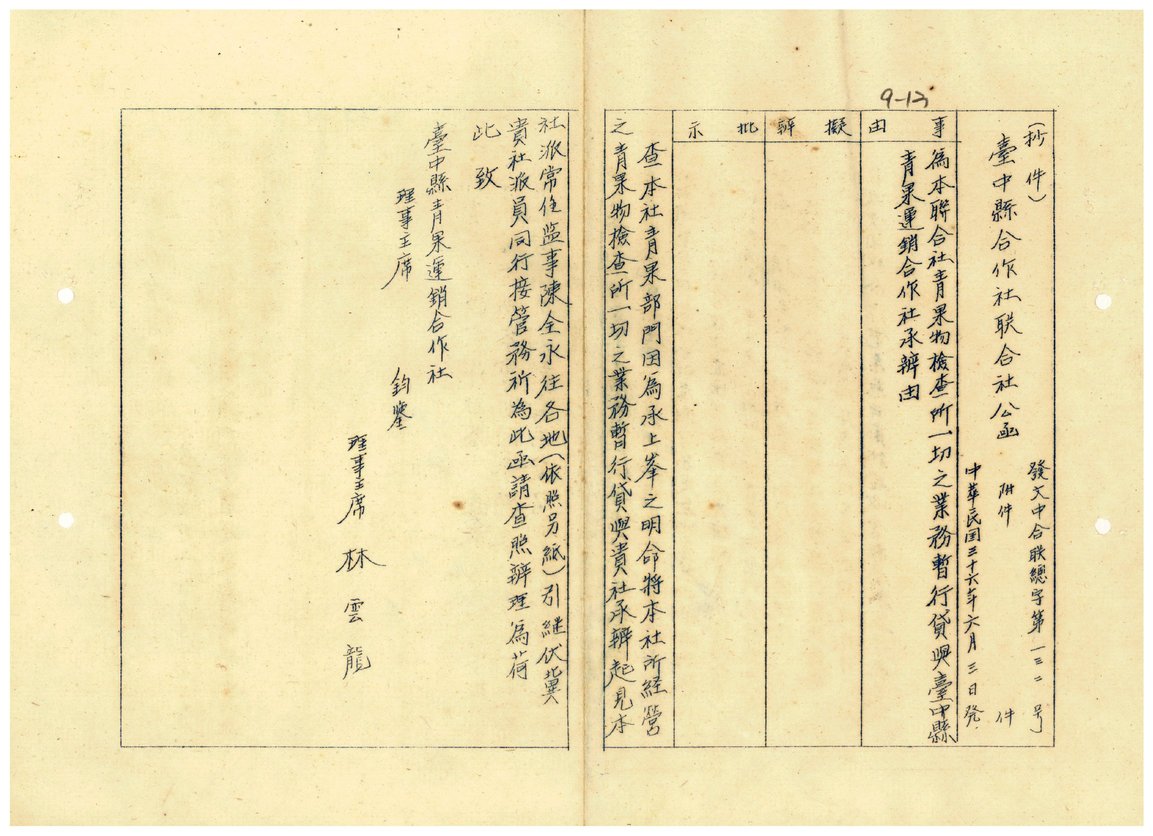 9-13
(抄件)
臺中縣合作社联合社公函
發文中合联總字第一三二号
附件 件
中華民国三十六年六月三日発
事由
擬辦
批示
為本聯合社青果物檢查所一切之業務暫行貸與臺中縣
青果運銷合作社承辦由
查本社青果部門因為承上峯之明命將本社所経營
之青果物檢查所一切之業務暫行貸與貴社承辦起見本
社派常住监事陳全永往各地(依照另紙)引継伏冀
貴社派員同行接管務祈為此函請查照辦理為荷
此致
臺中縣青果運銷合作社
理事主席 鈞鑒
理事主席 林雲龍